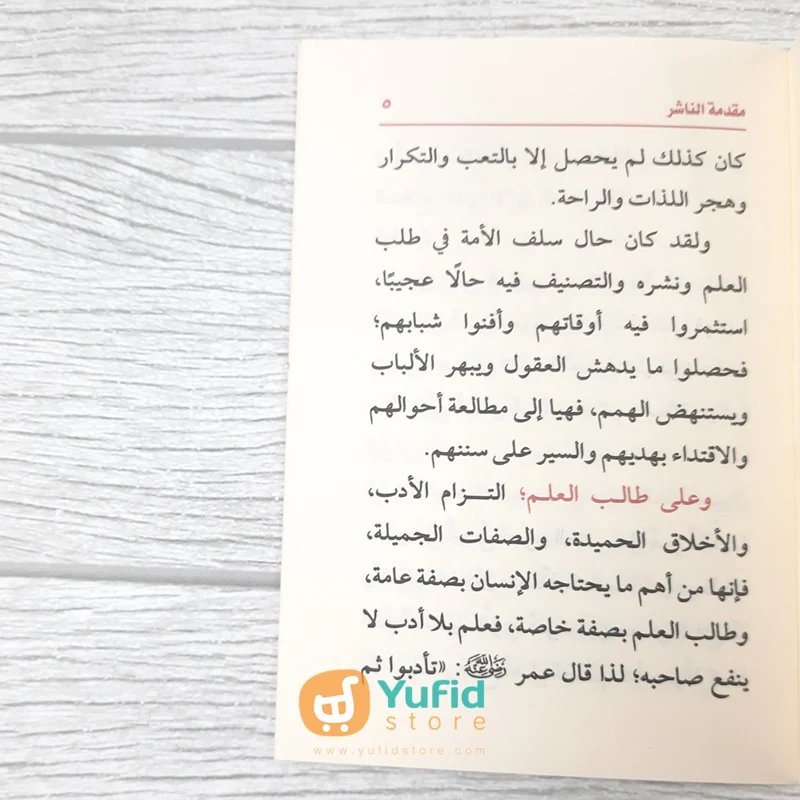 مقدمة الناشر ٥
كان كذلك لم يحصل إلا بالتعب والتكرار
وهجر اللذات والراحة.
ولقد كان حال سلف الأمة في طلب
العلم ونشره والتصنيف فيه حالًا عجيبًا،
استثمروا فيه أوقاتهم وأفنوا شبابهم؛
فحصلوا ما يدهش العقول ويبهر الألباب
ويستنهض الهمم، فهيا إلى مطالعة أحوالهم
والاقتداء بهديهم والسير على سننهم.
وعلى طالب العلم؛ التزام الأدب،
والأخلاق الحميدة، والصفات الجميلة،
فإنها من أهم ما يحتاجه الإنسان بصفة عامة،
وطالب العلم بصفة خاصة، فعلم بلا أدب لا
ينفع صاحبه؛ لذا قال عمر رضي الله عنه: «تأدبوا ثم
Yufid
store
www.yufidstore.com